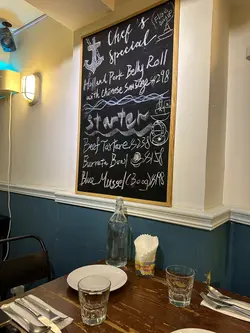 Chef's
Special
Holland Pork Belly Roll
with Chinese Sausage $298
Starter
Beef Tartare $238
Burrata Bowl $15
Blue Mussel (800g) $98